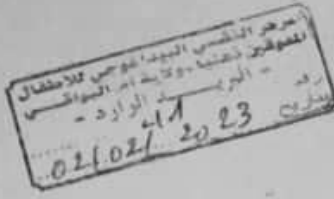 المركز النفسي البيداغوجي للأطفال
المعوقين ذهنيا - ولاية أم البواقي
- البريد الوارد -
رقم 41
بتاريخ 02/02/2023